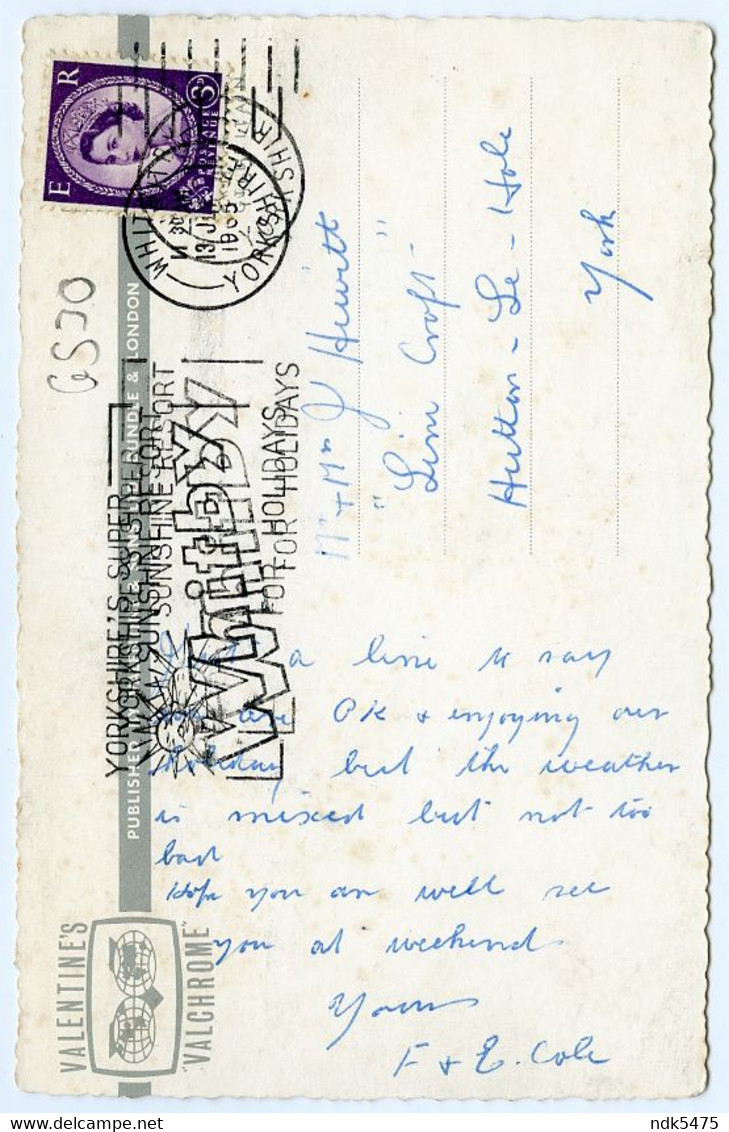 VALENTINE'S
"VALCHROME"
PUBLISHER & LONDON
YORKSHIRE'S SUPER
SUNSHINE RESORT
Whitby
FOR HOLIDAYS
WHITBY
13 1965
YORKSHIRE
E R
3D
POSTAGE
REVENUE
GS30
a line to say
are OK & enjoying our
holiday but the weather
is mixed but not too
bad
Hope you are well see
you at weekend
Yours
F & E. Cole
Mr + Mrs J Hewitt
"Lim Croft"
Hutton - Le - Hole
York
ndk5475